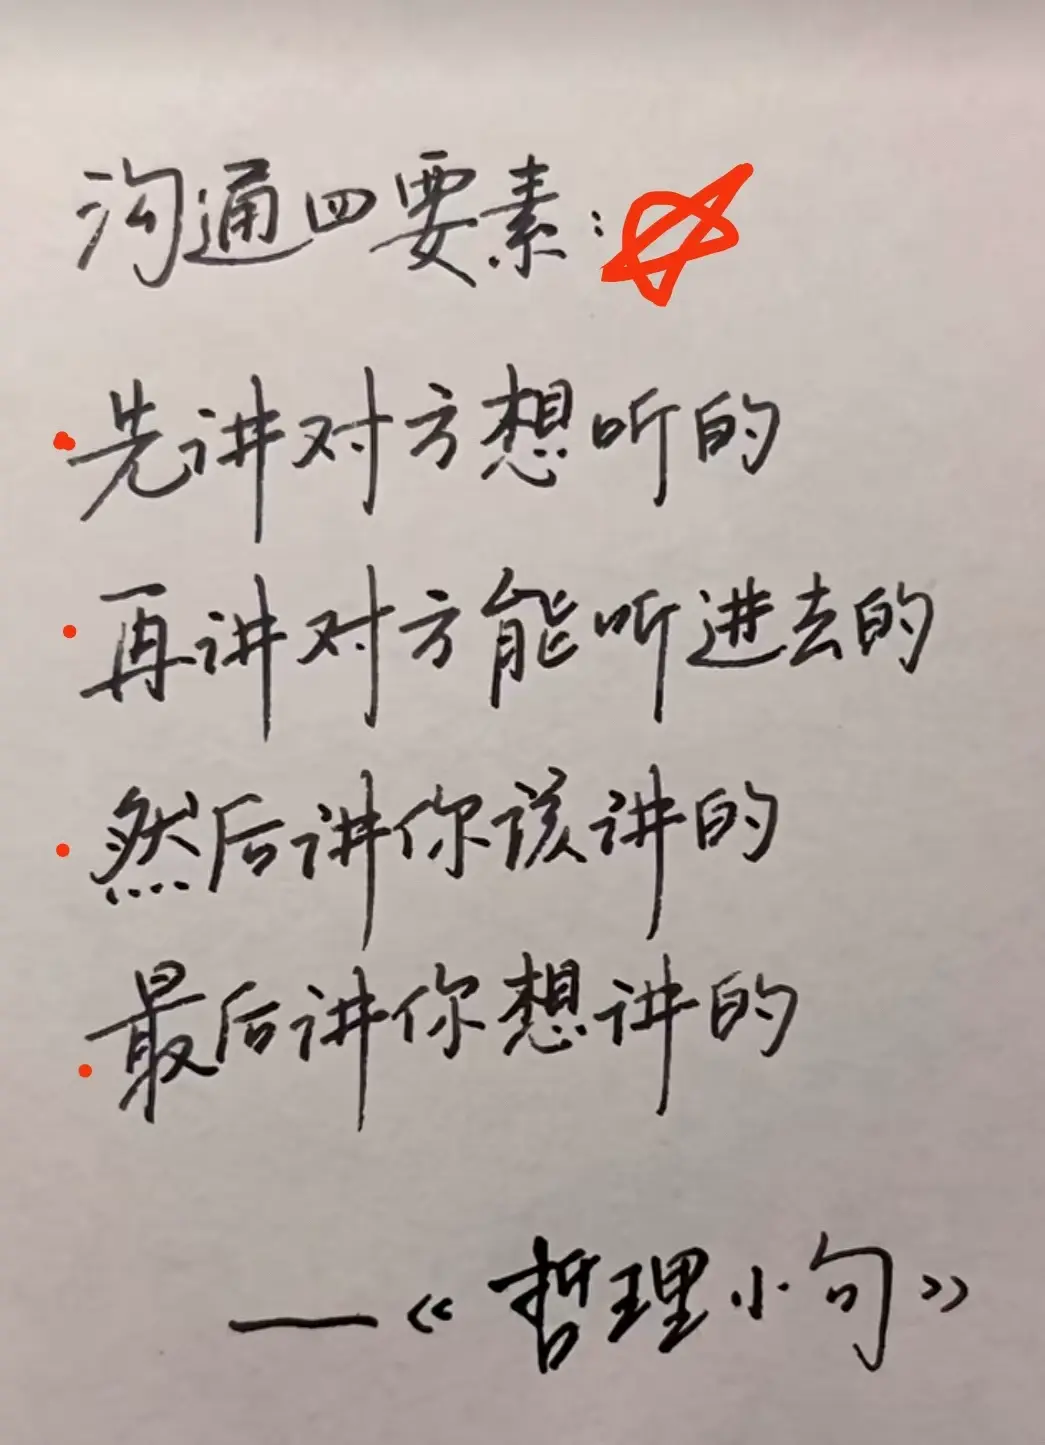 沟通四要素:
先讲对方想听的
再讲对方能听进去的
然后讲你该讲的
最后讲你想讲的
——《哲理小句》